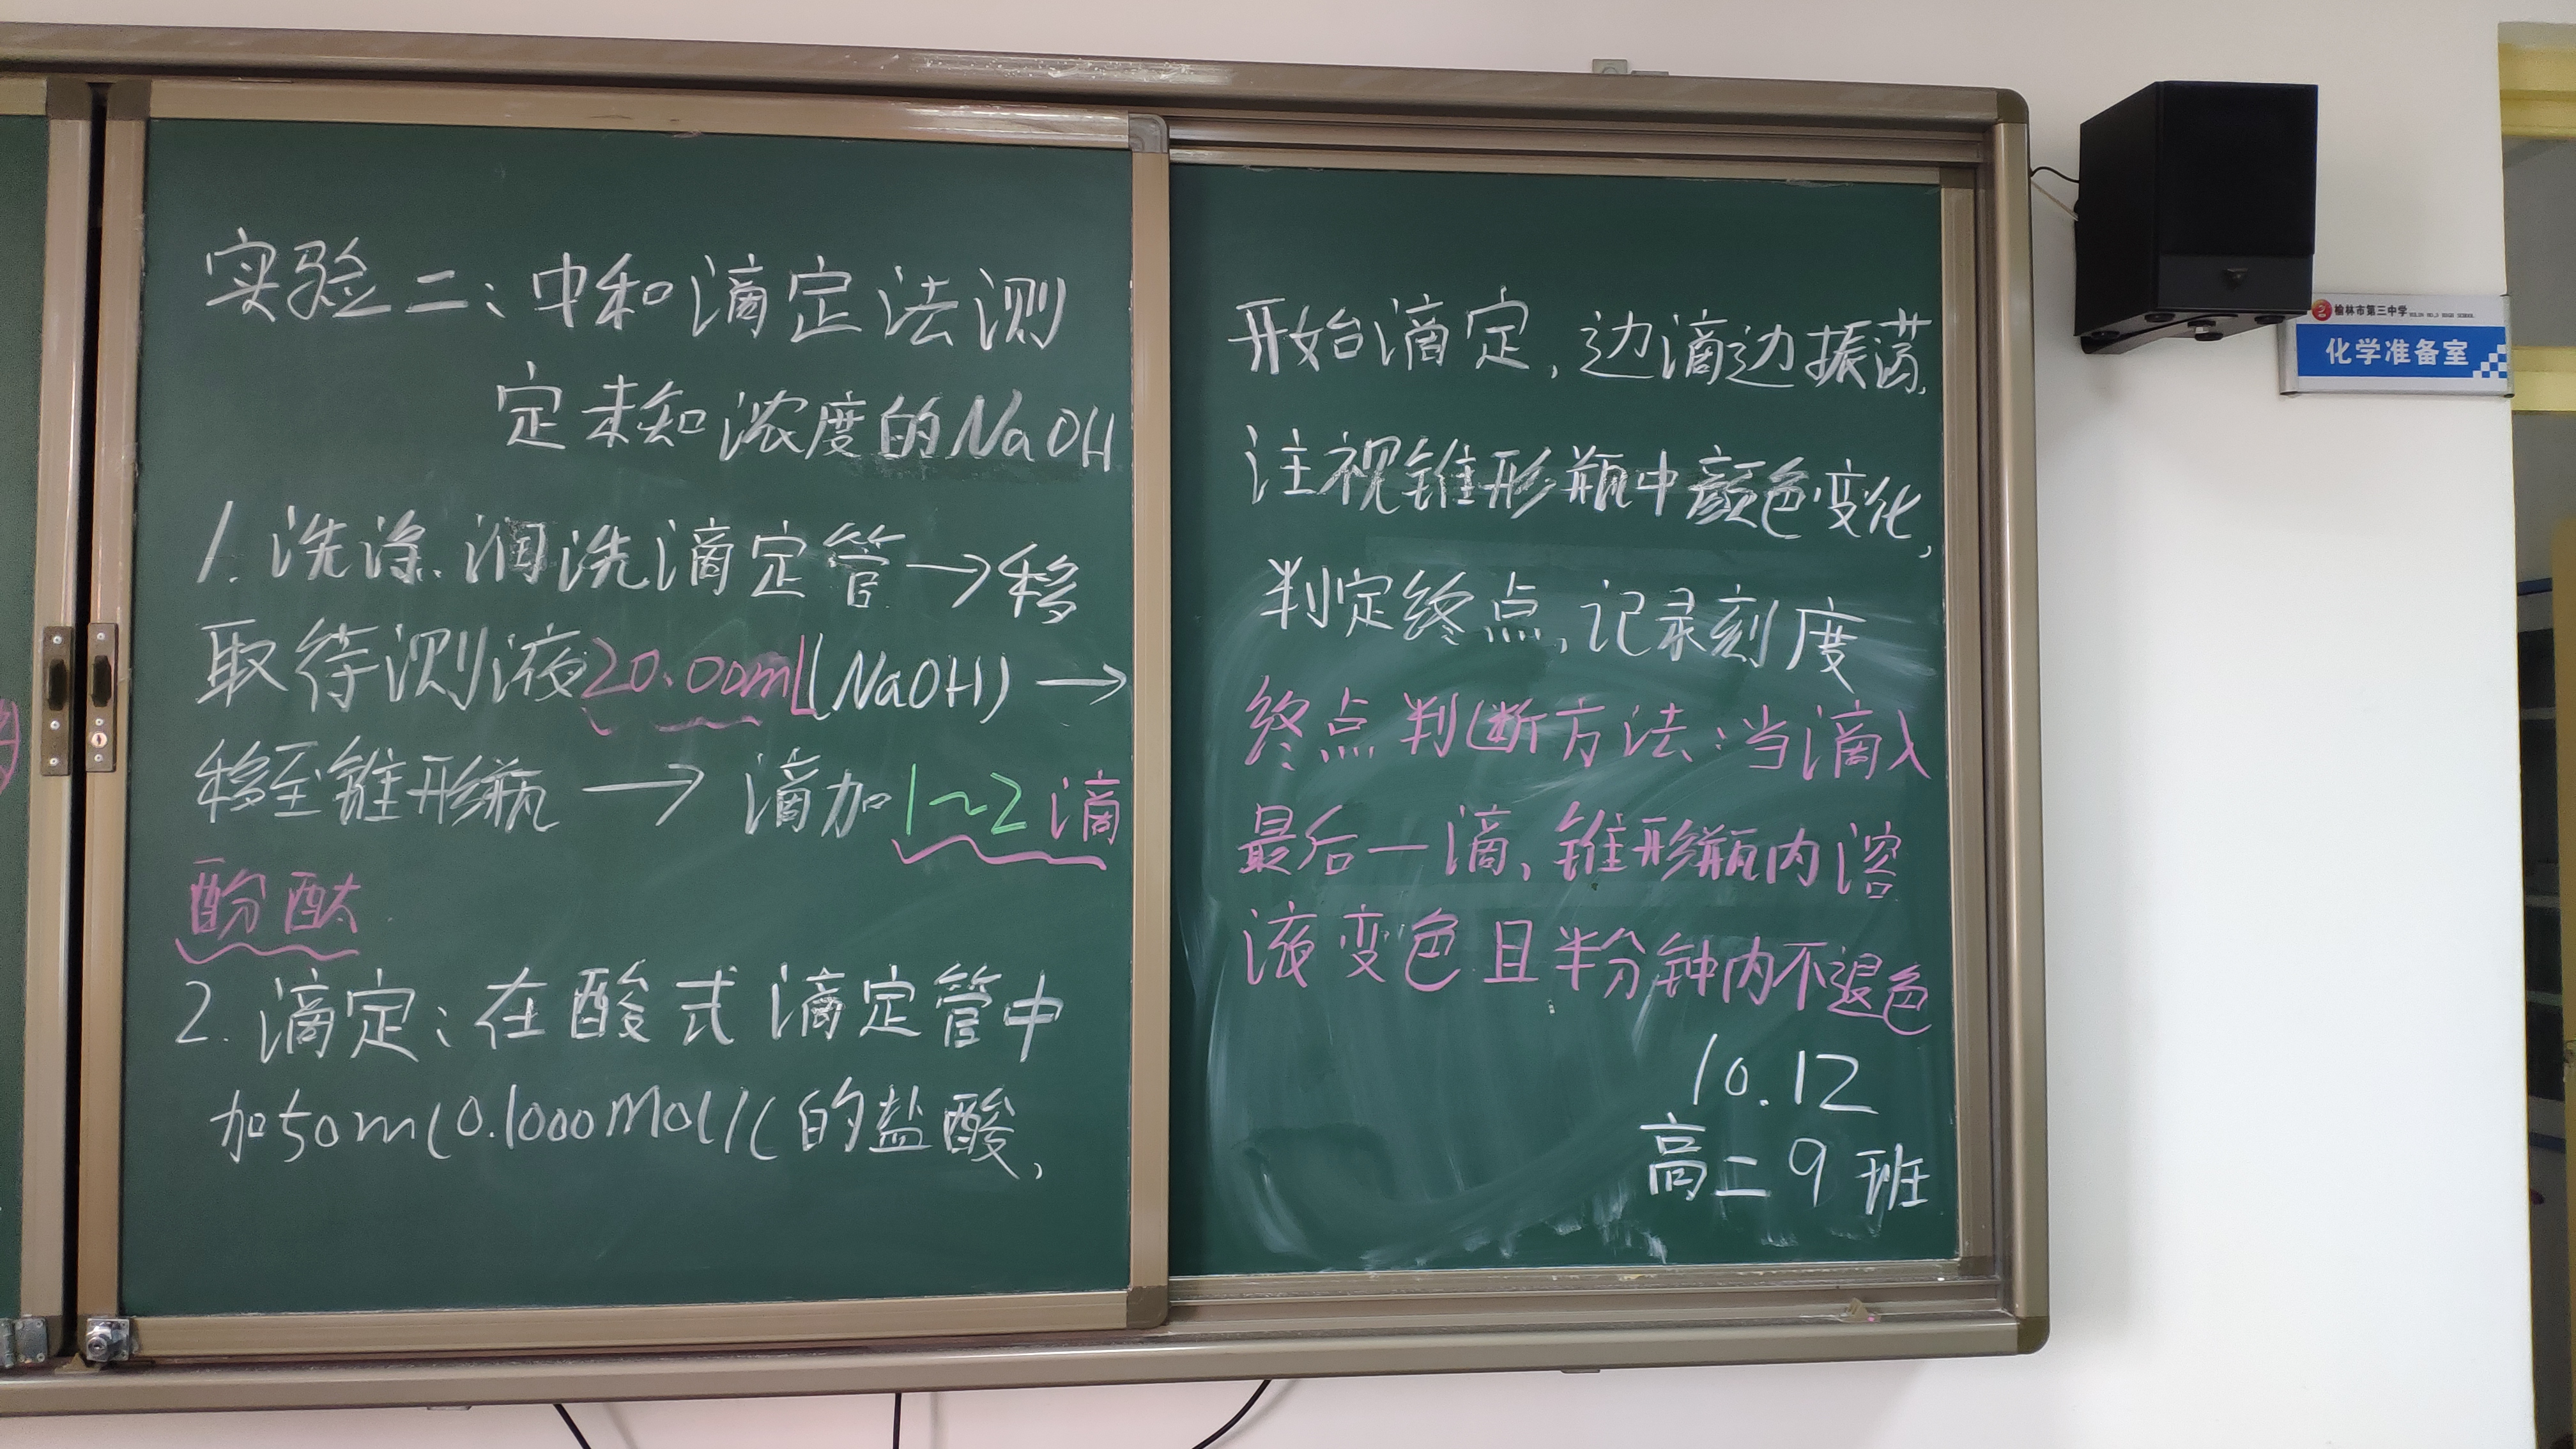 实验二:中和滴定法测
定未知浓度的NaOH
1.洗涤.润洗滴定管→移
取待测液20.00mL(NaOH)→
移至锥形瓶→滴加1~2滴
酚酞.
2.滴定:在酸式滴定管中
加50ml0.1000mol/L的盐酸,
开始滴定,边滴边振荡,
注视锥形瓶中颜色变化,
判定终点,记录刻度
终点判断方法:当滴入
最后一滴、锥形瓶内溶
液变色且半分钟内不退色
10.12
高二9班
榆林市第三中学
化学准备室